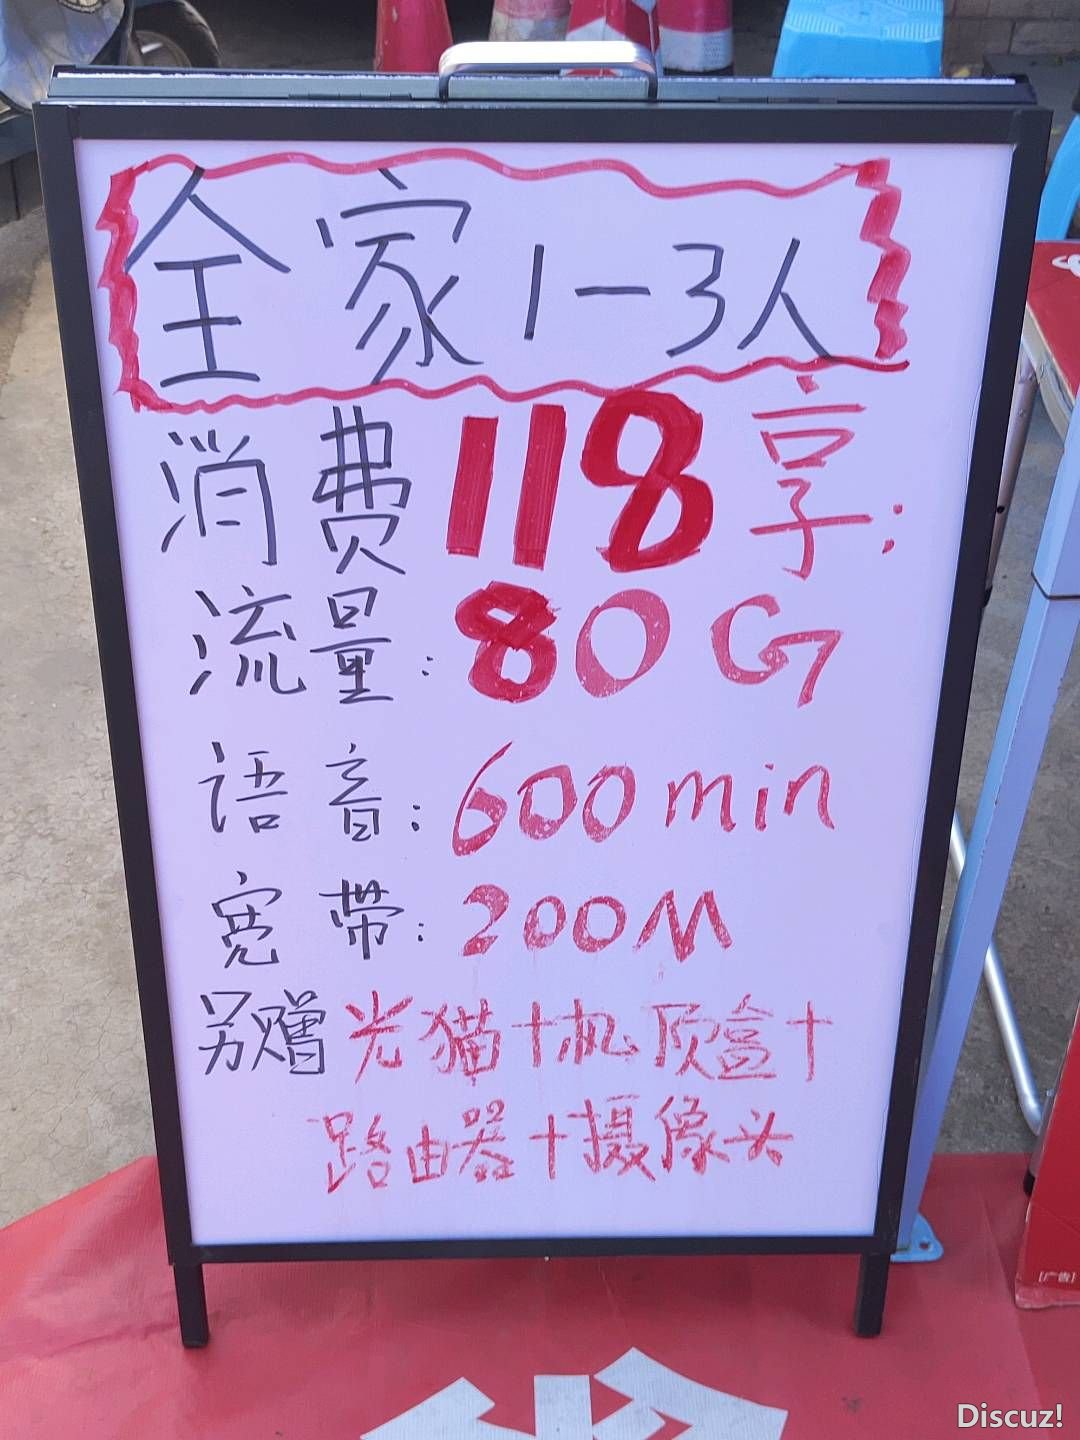 全家1-3人
消费118享:
流量:80G
语音:600min
宽带:200M
另赠光猫+机顶盒+
路由器+摄像头
[广告]
Discuz!